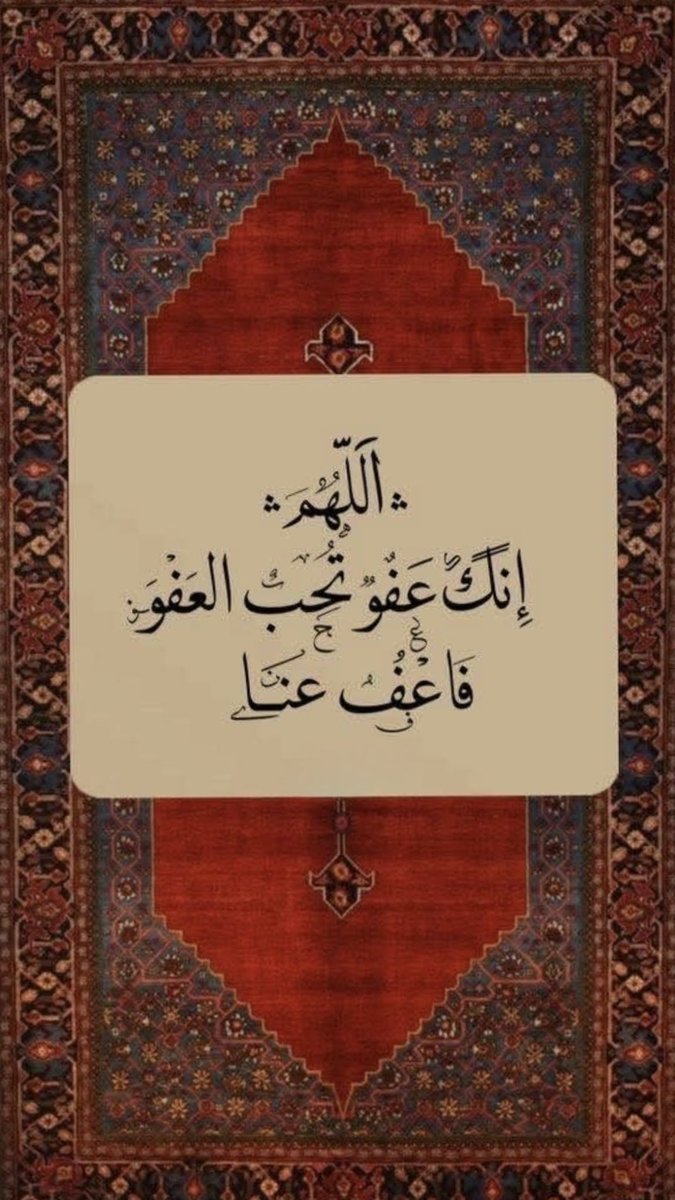 اَللّٰهُمَ
إِنَّكَ عَفُوٌ تُحِبُ العَفْوَ
فَاعْفُ عَنَا